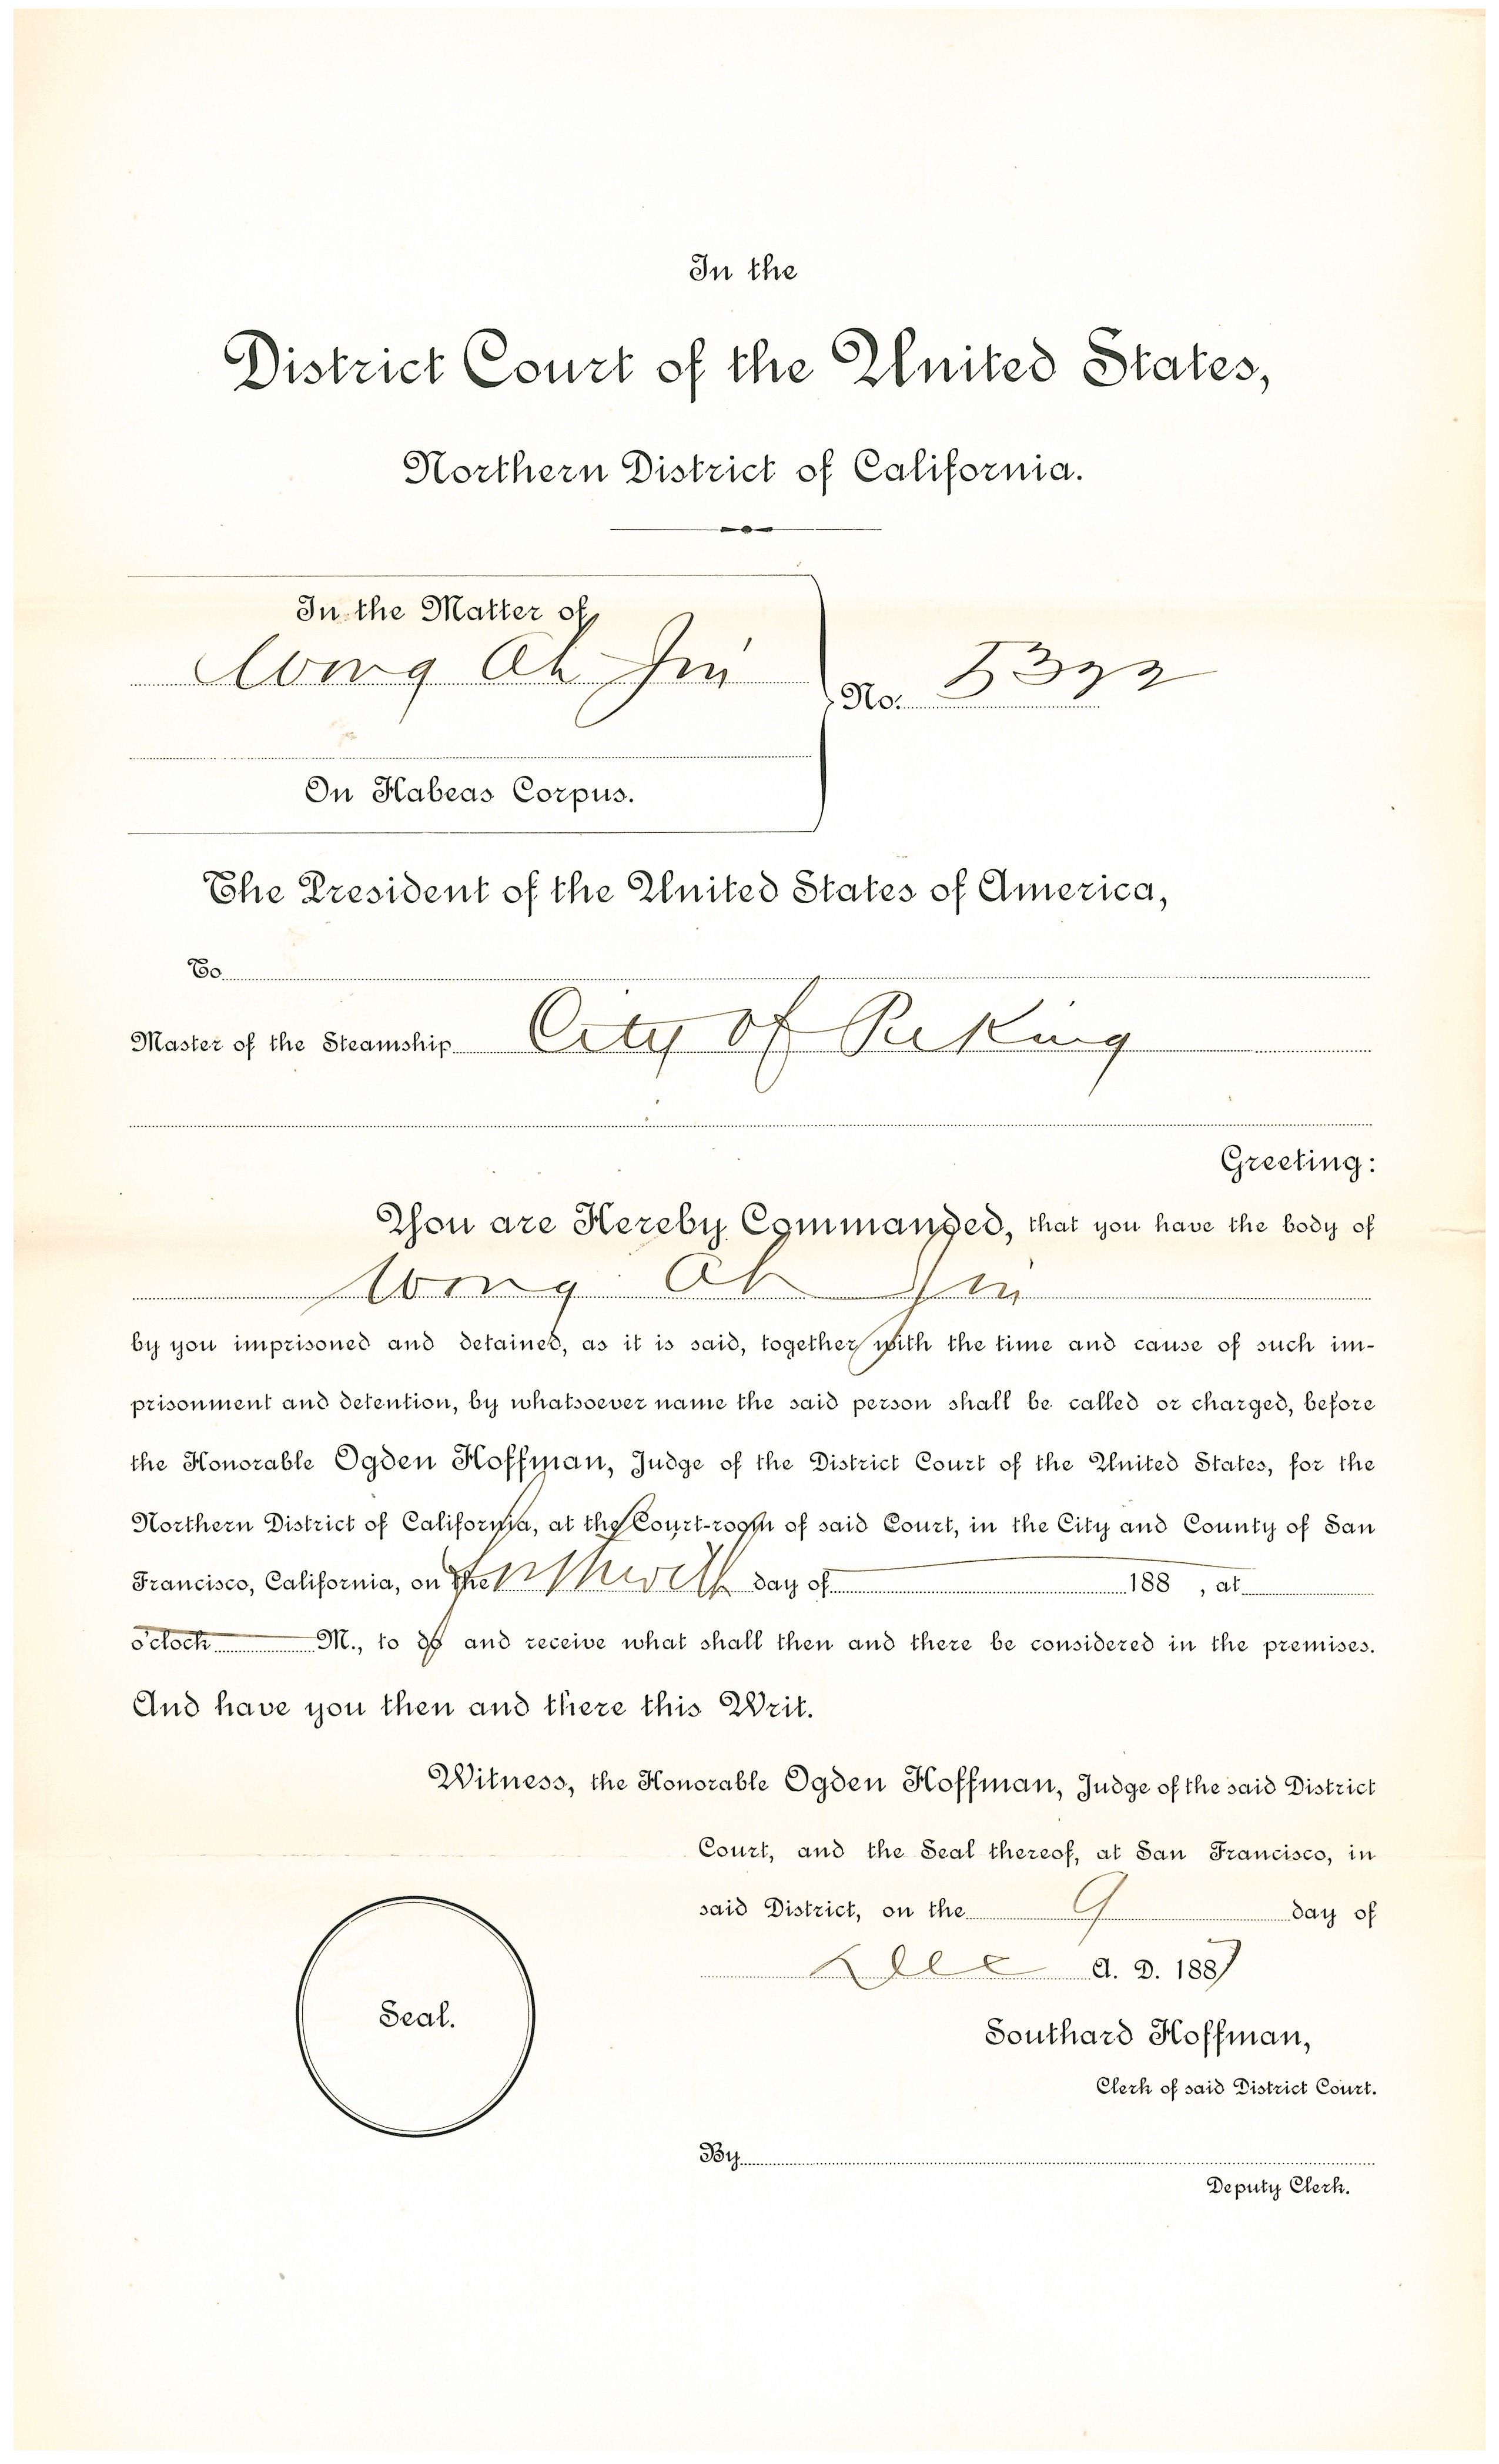 In the
District Court of the United States,
Northern District of California.
In the Matter of
Wong Ah Jin
No.
On Habeas Corpus.
The President of the United States of America,
To
Master of the Steamship City of PeKing
Greeting:
You are Hereby Commanded, that you have the body of
Wong Ah Jin
by you imprisoned and detained, as it is said, together with the time and cause of such im-
prisonment and detention, by whatsoever name the said person shall be called or charged, before
the Honorable Ogden Hoffman, Judge of the District Court of the United States, for the
Northern District of California, at the Court-room of said Court, in the City and County of San
Francisco, California, on the forthwith day of 188 , at
o'clock M., to do and receive what shall then and there be considered in the premises.
And have you then and there this Writ.
Witness, the Honorable Ogden Hoffman, Judge of the said District
Court, and the Seal thereof, at San Francisco, in
said District, on the 9 day of
Dec A. D. 1887
Seal.
Southard Hoffman,
Clerk of said District Court.
By
Deputy Clerk.